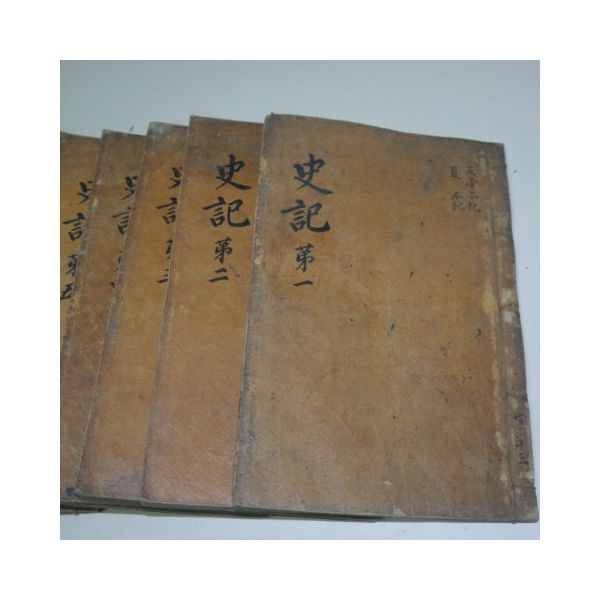 史記 第一
五帝本紀
夏本紀
史記 第二
史記 第三
史記 第
史記 第五